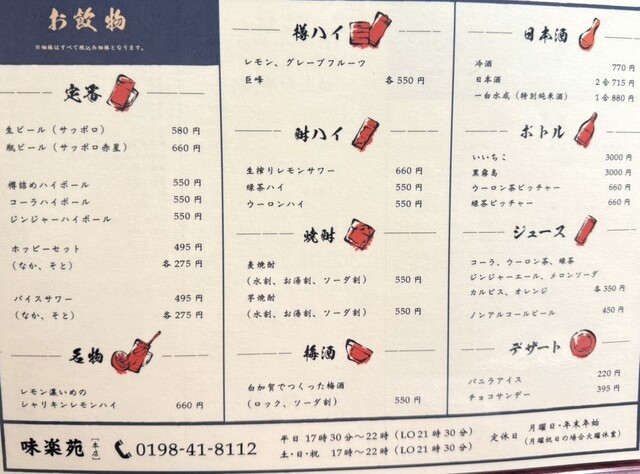 お飲物
※価格はすべて税込み価格となります。
定番
生ビール（サッポロ） 580円
瓶ビール（サッポロ赤星） 660円
樽詰めハイボール 550円
コーラハイボール 550円
ジンジャーハイボール 550円
ホッピーセット 495円
（なか、そと） 各275円
バイスサワー 495円
（なか、そと） 各275円
名物
レモン濃いめの
シャリキンレモンハイ 660円
樽ハイ
レモン、グレープフルーツ
巨峰 各550円
酎ハイ
生搾りレモンサワー 660円
緑茶ハイ 550円
ウーロンハイ 550円
焼酎
麦焼酎
（水割、お湯割、ソーダ割） 550円
芋焼酎
（水割、お湯割、ソーダ割） 550円
梅酒
白加賀でつくった梅酒
（ロック、ソーダ割） 550円
日本酒
冷酒 770円
日本酒 2合715円
一白水成（特別純米酒） 1合880円
ボトル
いいちこ 3000円
黒霧島 3000円
ウーロン茶ピッチャー 660円
緑茶ピッチャー 660円
ジュース
コーラ、ウーロン茶、緑茶
ジンジャーエール、メロンソーダ
カルピス、オレンジ 各350円
ノンアルコールビール 450円
デザート
バニラアイス 220円
チョコサンデー 395円
味楽苑［本店］ 0198-41-8112
平日 17時30分〜22時（LO21時30分）
土・日・祝 17時〜22時（LO21時30分）
定休日 月曜日・年末年始
（月曜祝日の場合火曜休業）